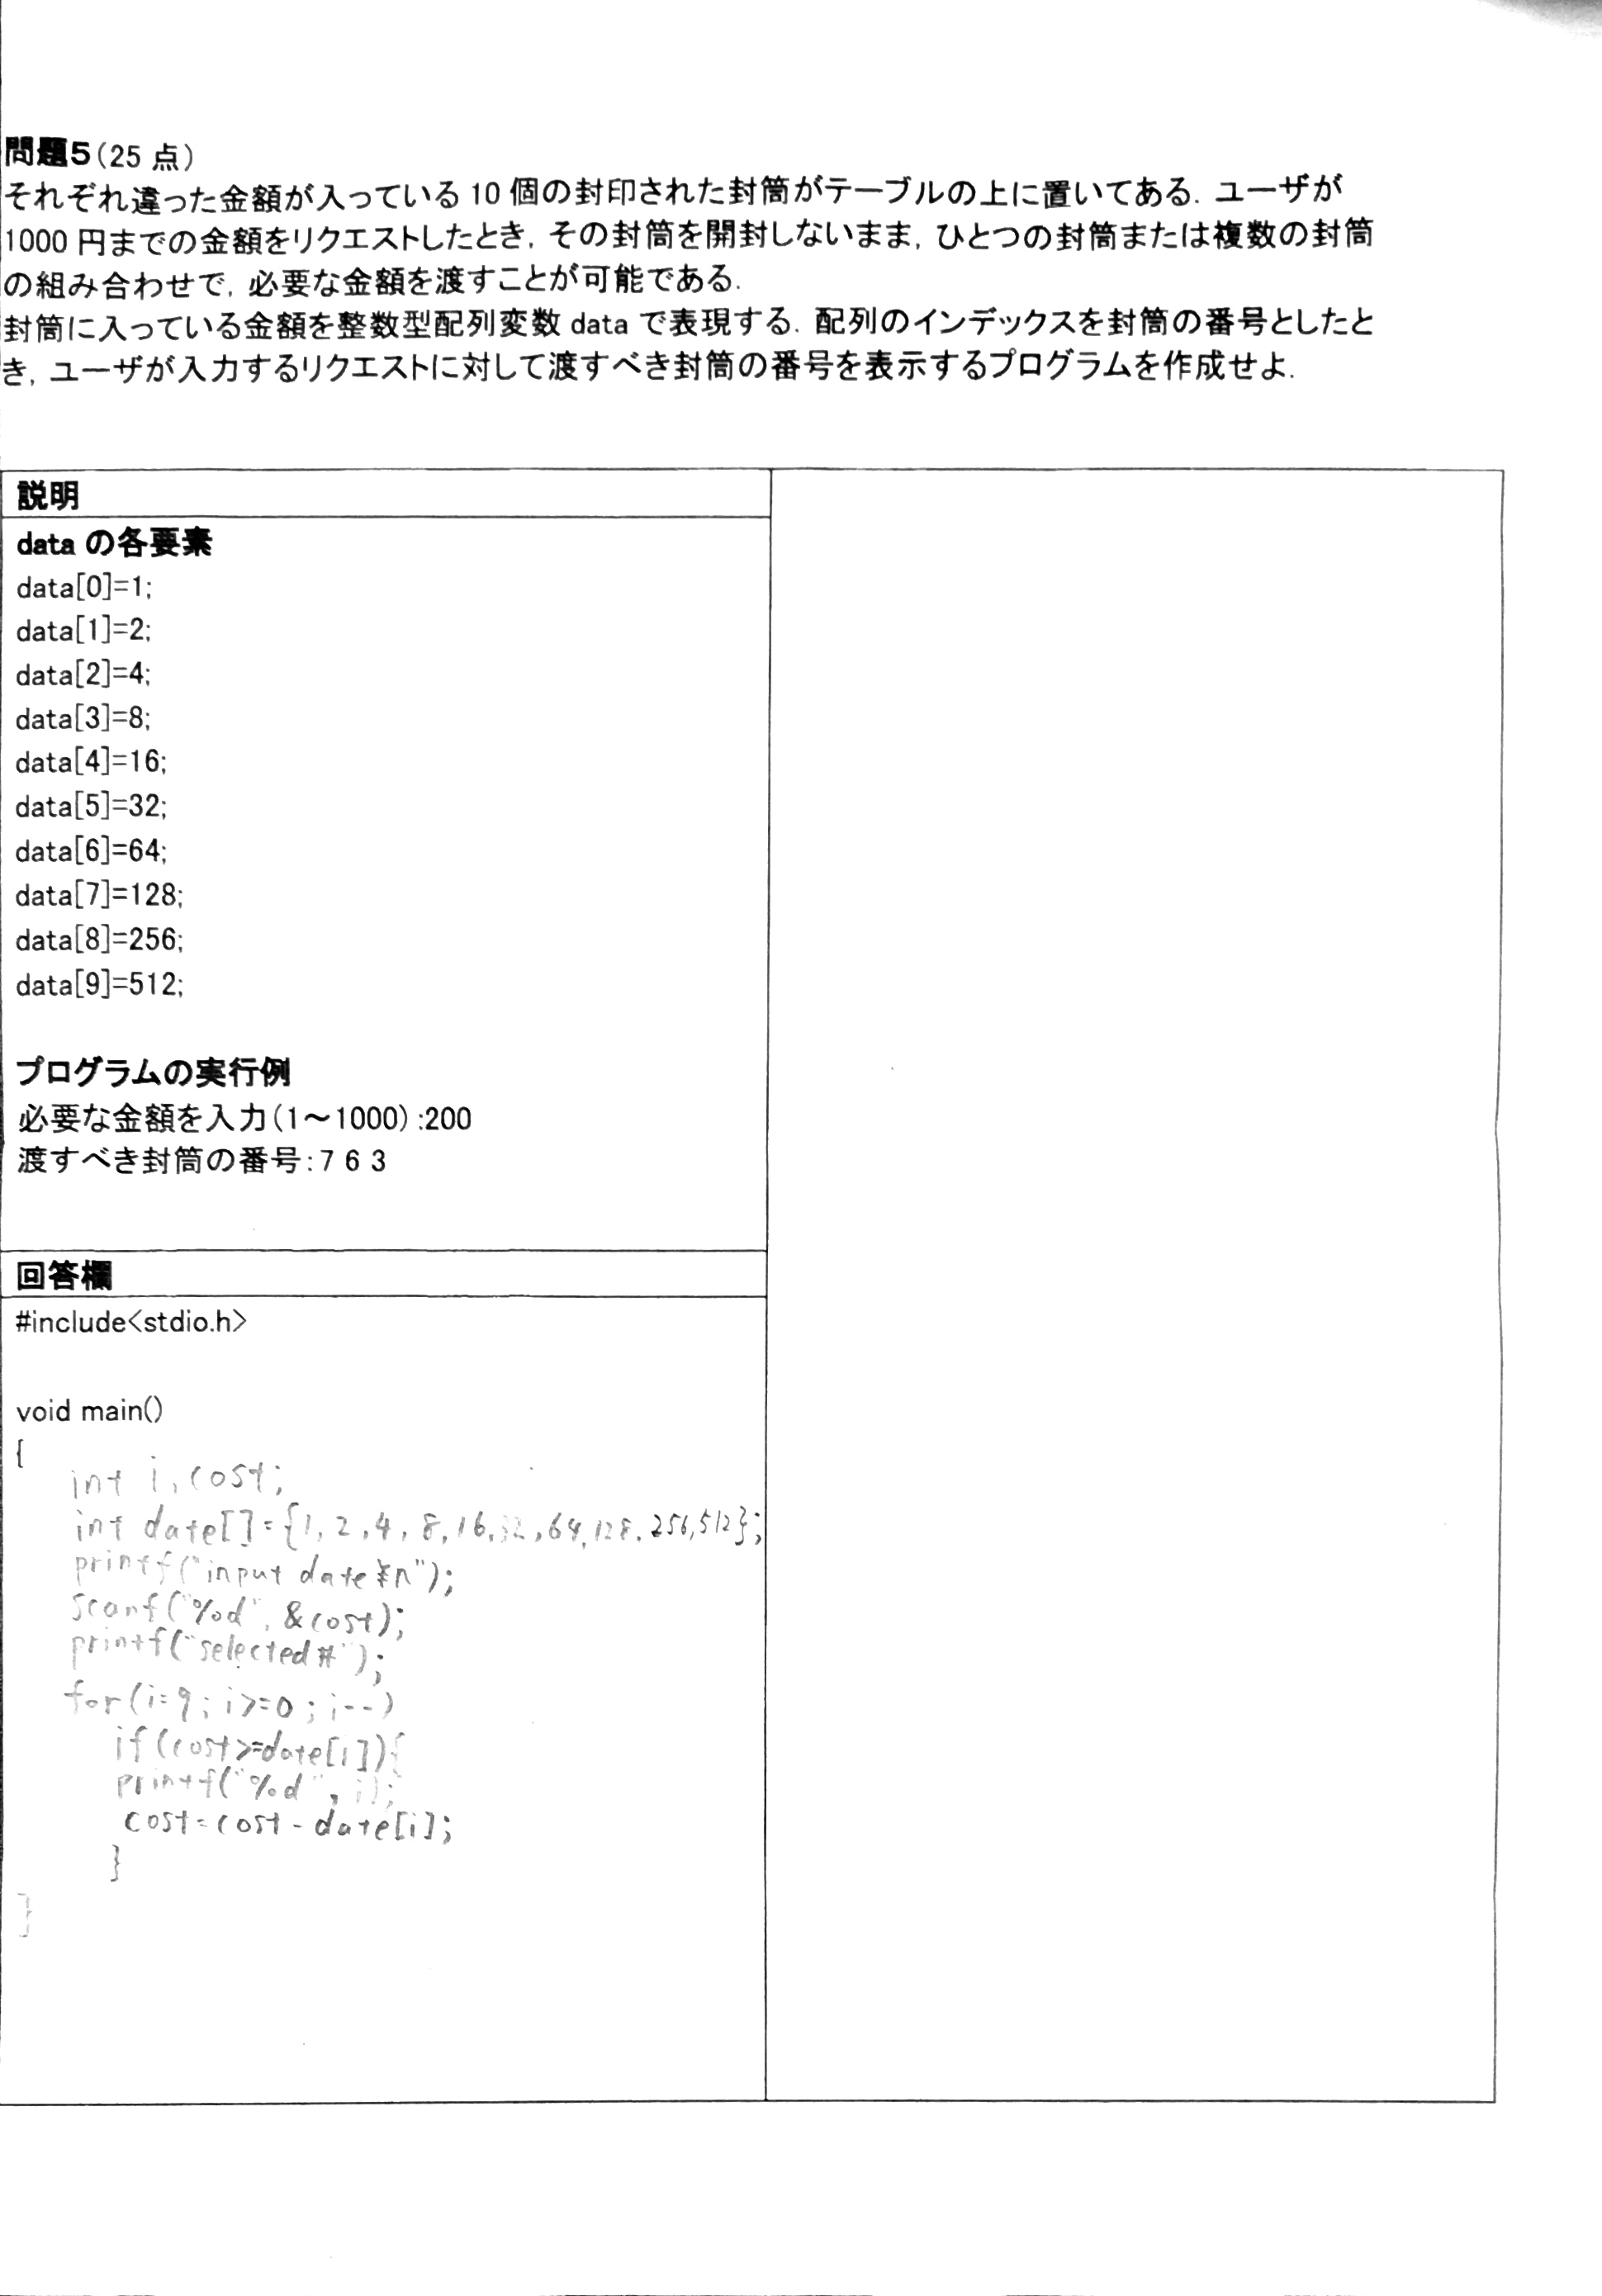 問題5(25 点)
それぞれ違った金額が入っている 10 個の封印された封筒がテーブルの上に置いてある. ユーザが
1000 円までの金額をリクエストしたとき, その封筒を開封しないまま, ひとつの封筒または複数の封筒
の組み合わせで, 必要な金額を渡すことが可能である.
封筒に入っている金額を整数型配列変数 data で表現する. 配列のインデックスを封筒の番号としたと
き, ユーザが入力するリクエストに対して渡すべき封筒の番号を表示するプログラムを作成せよ.
説明
data の各要素
data[0]=1;
data[1]=2;
data[2]=4;
data[3]=8;
data[4]=16;
data[5]=32;
data[6]=64;
data[7]=128;
data[8]=256;
data[9]=512;
プログラムの実行例
必要な金額を入力(1～1000) :200
渡すべき封筒の番号:7 6 3
回答欄
#include<stdio.h>
void main()
{
int i, cost;
int date[]={1, 2, 4, 8, 16, 32, 64, 128, 256, 512};
printf("input date¥n");
scanf("%d", &cost);
printf("selected#");
for(i=9; i>=0; i--)
if(cost>=date[i]){
printf("%d", i);
cost=cost-date[i];
}
}